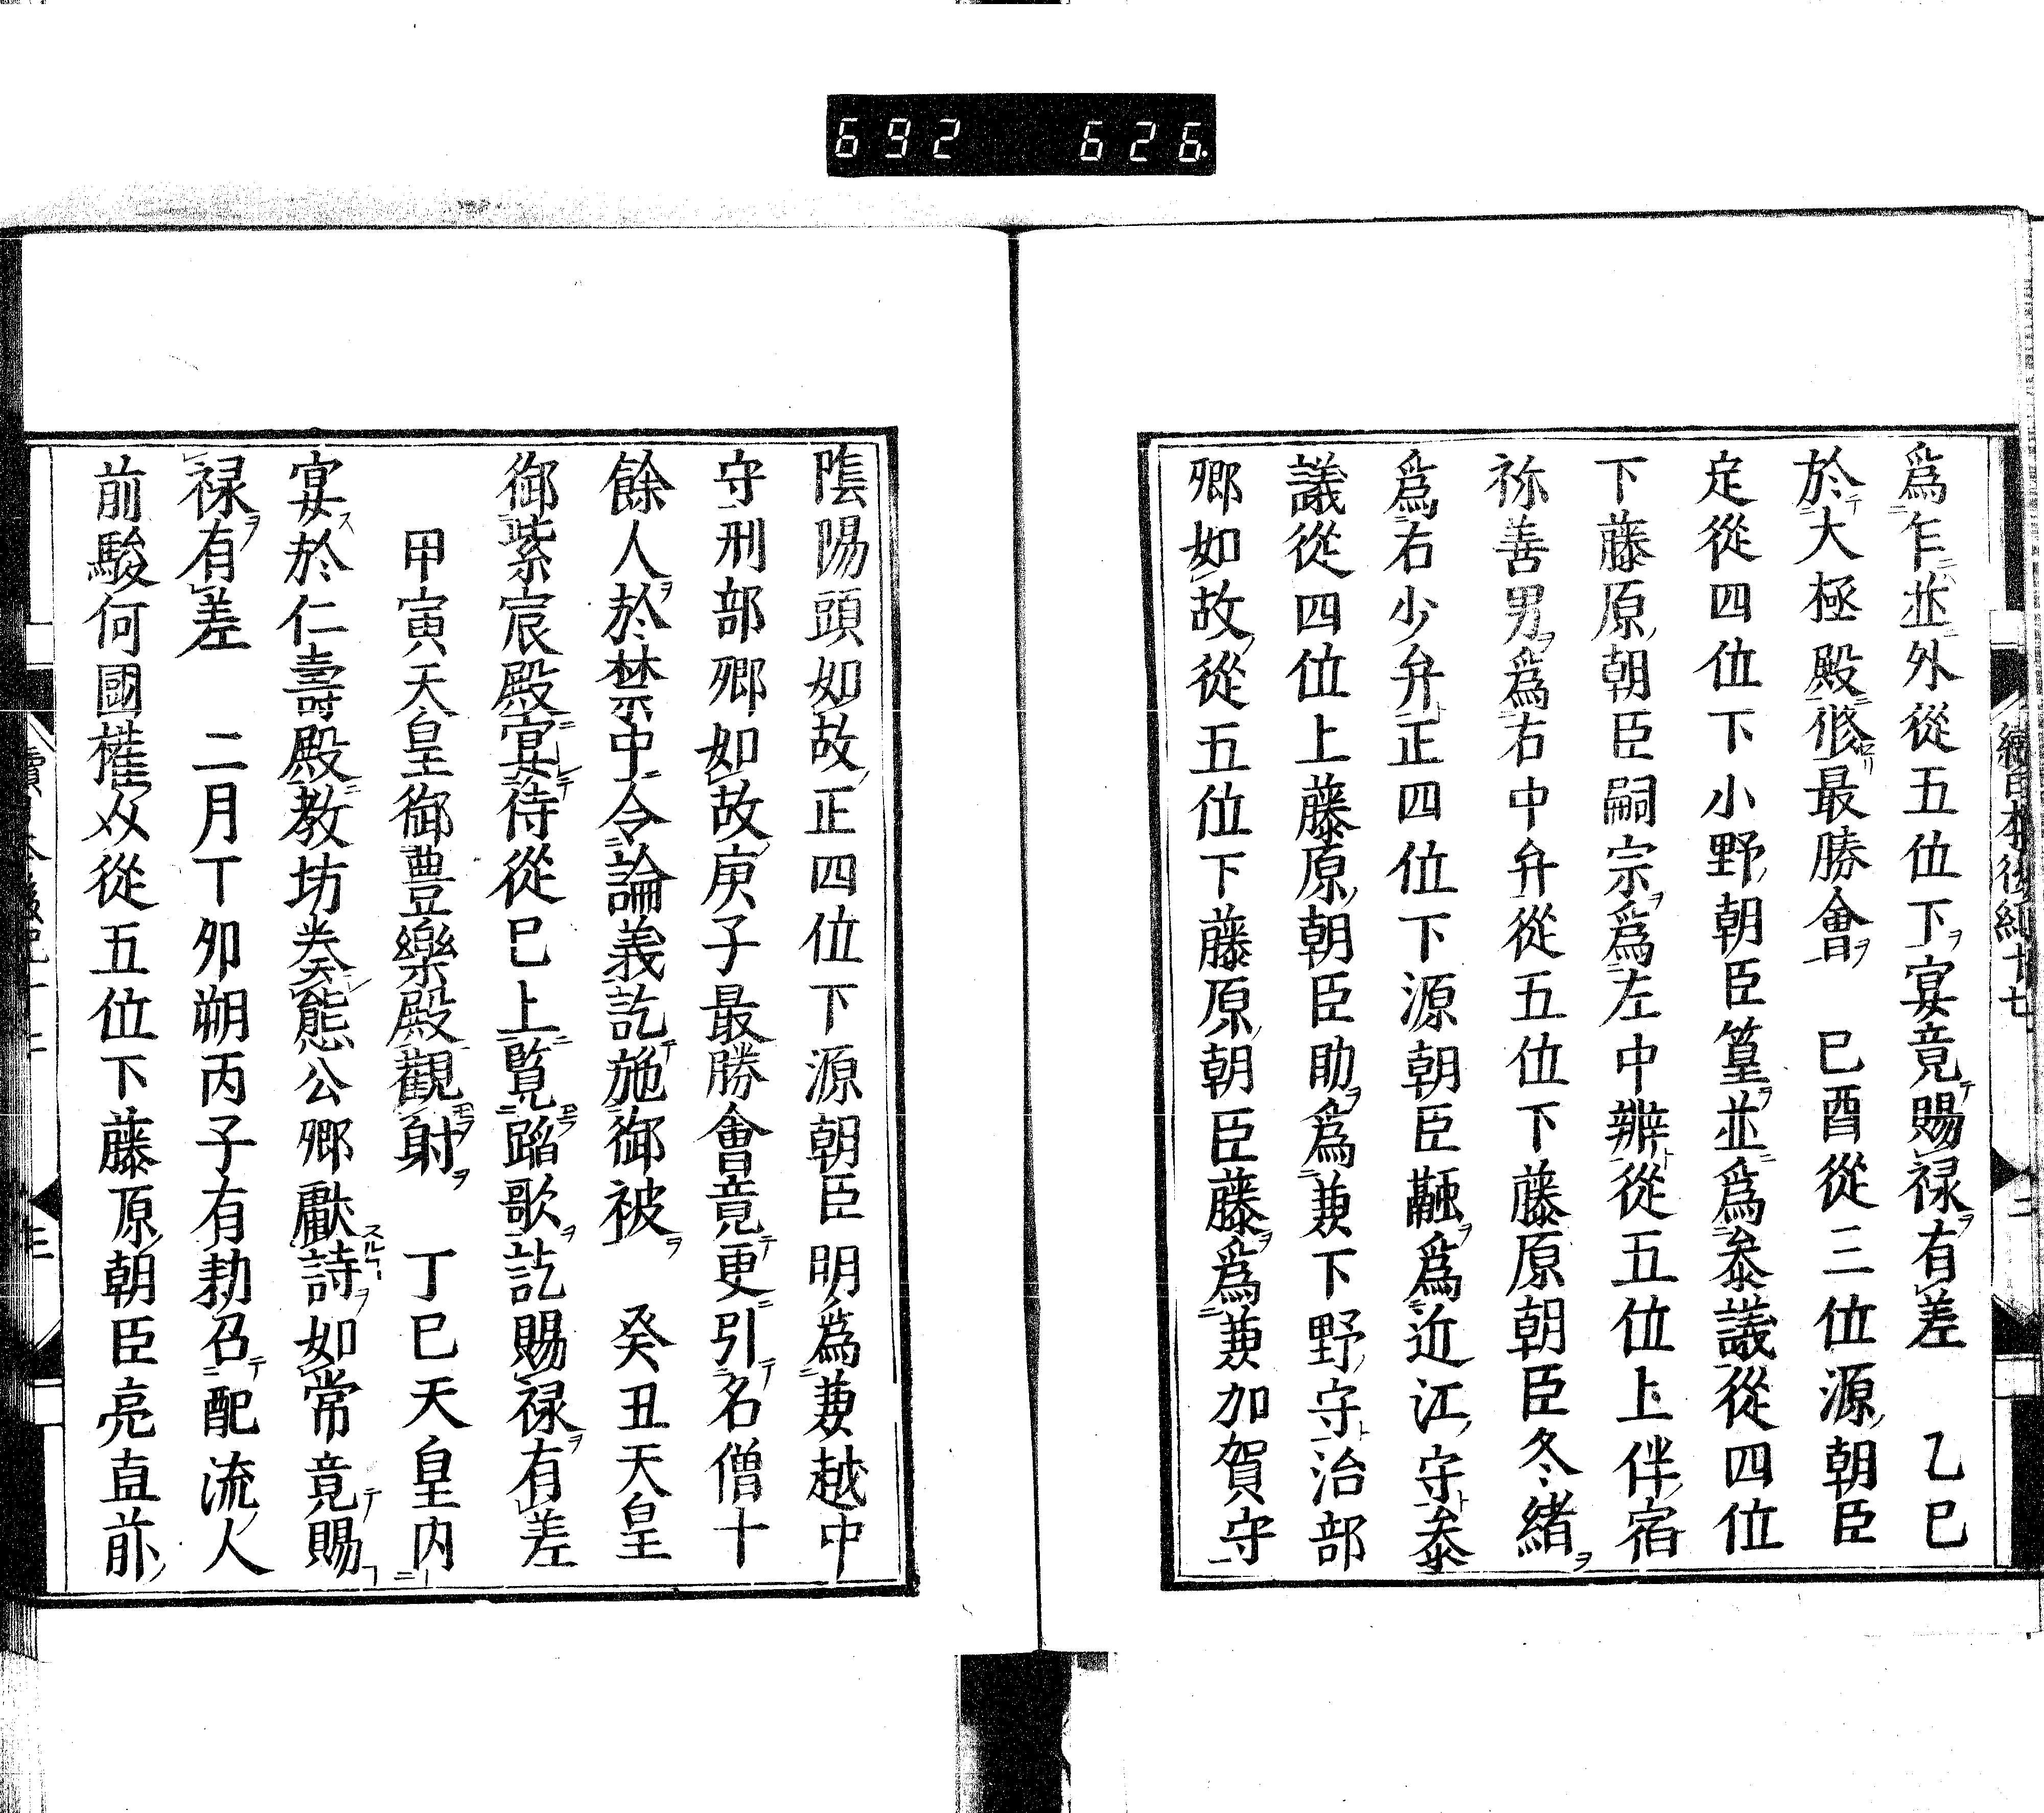 692 626
爲乍並外從五位下宴竟賜禄有差　乙巳
於大極殿修最勝會　巳酉從三位源朝臣
定從四位下小野朝臣篁並爲叅議從四位
下藤原朝臣嗣宗爲左中辨從五位上伴宿
祢善男爲右中弁從五位下藤原朝臣冬緒
爲右少弁正四位下源朝臣融爲近江守叅
議從四位上藤原朝臣助爲兼下野守治部
卿如故從五位下藤原朝臣藤爲兼加賀守
陰陽頭如故正四位下源朝臣明爲兼越中
守刑部卿如故庚子最勝會竟更引名僧十
餘人於禁中令論義訖施御被　癸丑天皇
御紫宸殿宴侍從已上覧蹈歌訖賜禄有差
甲寅天皇御豊樂殿觀射　丁巳天皇内
宴於仁壽殿教坊奏態公卿獻詩如常竟賜
禄有差　二月丁夘朔丙子有勑召配流人
前駿何國權掾從五位下藤原朝臣亮直前